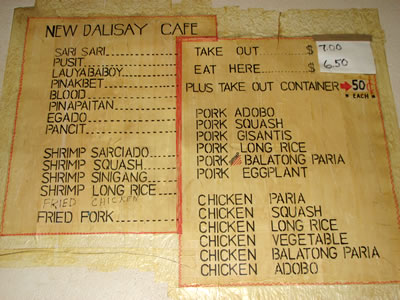 NEW DALISAY CAFE
SARI SARI
PUSIT
LAUYABABOY
PINAKBET
BLOOD
PINAPAITAN
EGADO
PANCIT
SHRIMP SARCIADO
SHRIMP SQUASH
SHRIMP SINIGANG
SHRIMP LONG RICE
FRIED CHICKEN
FRIED PORK
TAKE OUT $ 7.00
EAT HERE $ 6.50
PLUS TAKE OUT CONTAINER 50¢
EACH
PORK ADOBO
PORK SQUASH
PORK GISANTIS
PORK LONG RICE
PORK BALATONG PARIA
PORK EGGPLANT
CHICKEN PARIA
CHICKEN SQUASH
CHICKEN LONG RICE
CHICKEN VEGETABLE
CHICKEN BALATONG PARIA
CHICKEN ADOBO